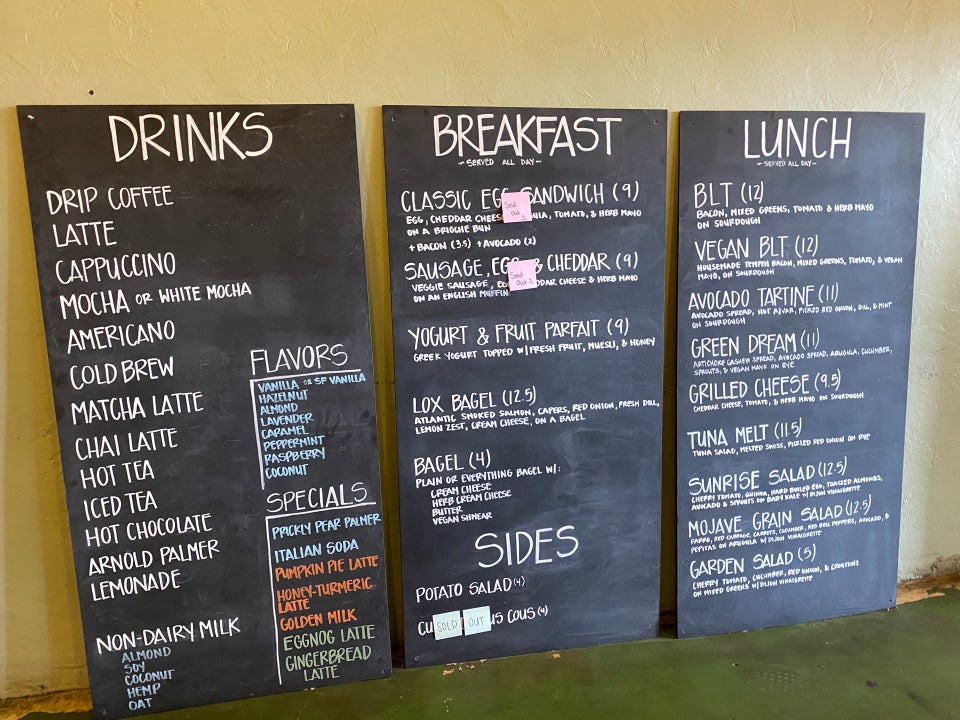 DRINKS
DRIP COFFEE
LATTE
CAPPUCCINO
MOCHA OR WHITE MOCHA
AMERICANO
COLD BREW
MATCHA LATTE
CHAI LATTE
HOT TEA
ICED TEA
HOT CHOCOLATE
ARNOLD PALMER
LEMONADE
NON-DAIRY MILK
ALMOND
SOY
COCONUT
HEMP
OAT
FLAVORS
VANILLA OR SF VANILLA
HAZELNUT
ALMOND
LAVENDER
CARAMEL
PEPPERMINT
RASPBERRY
COCONUT
SPECIALS
PRICKLY PEAR PALMER
ITALIAN SODA
PUMPKIN PIE LATTE
HONEY-TURMERIC
LATTE
GOLDEN MILK
EGGNOG LATTE
GINGERBREAD
LATTE
BREAKFAST
~SERVED ALL DAY~
CLASSIC EGG SANDWICH (9)
EGG, CHEDDAR CHEES TOMATO, & HERB MAYO
ON A BRIOCHE BUN
+ BACON (3.5) + AVOCADO (2)
Sold
Out
SAUSAGE, EGG & CHEDDAR (9)
VEGGIE SAUSAGE, CHEESE & HERB MAYO
ON AN ENGLISH MUFFIN
Sold
Out
YOGURT & FRUIT PARFAIT (9)
GREEK YOGURT TOPPED W/FRESH FRUIT, MUESLI, & HONEY
LOX BAGEL (12.5)
ATLANTIC SMOKED SALMON, CAPERS, RED ONION, FRESH DILL,
LEMON ZEST, CREAM CHEESE, ON A BAGEL
BAGEL (4)
PLAIN OR EVERYTHING BAGEL W/:
CREAM CHEESE
HERB CREAM CHEESE
BUTTER
VEGAN SHMEAR
SIDES
POTATO SALAD (4)
CU SOLD OUT US COUS (4)
LUNCH
~SERVED ALL DAY~
BLT (12)
BACON, MIXED GREENS, TOMATO & HERB MAYO
ON SOURDOUGH
VEGAN BLT (12)
HOUSEMADE TEMPEH BACON, MIXED GREENS, TOMATO, & VEGAN
MAYO, ON SOURDOUGH
AVOCADO TARTINE (11)
AVOCADO SPREAD, HOT AJVAR, PICKLED RED ONION, DILL, & MINT
ON SOURDOUGH
GREEN DREAM (11)
ARTICHOKE CASHEW SPREAD, AVOCADO SPREAD, ARUGULA, CUCUMBER,
SPROUTS, & VEGAN MAYO ON RYE
GRILLED CHEESE (9.5)
CHEDDAR CHEESE, TOMATO, & HERB MAYO ON SOURDOUGH
TUNA MELT (11.5)
TUNA SALAD, MELTED SWISS, PICKLED RED ONION ON RYE
SUNRISE SALAD (12.5)
CHERRY TOMATO, QUINOA, HARD BOILED EGG, TOASTED ALMONDS,
AVOCADO & SPROUTS ON BABY KALE W/ DIJON VINAIGRETTE
MOJAVE GRAIN SALAD (12.5)
FARRO, RED CABBAGE, CARROTS, CUCUMBER, RED BELL PEPPERS, AVOCADO, &
PEPITAS ON ARUGULA W/ DIJON VINAIGRETTE
GARDEN SALAD (5)
CHERRY TOMATO, CUCUMBER, RED ONION, & CROUTONS
ON MIXED GREENS W/ DIJON VINAIGRETTE